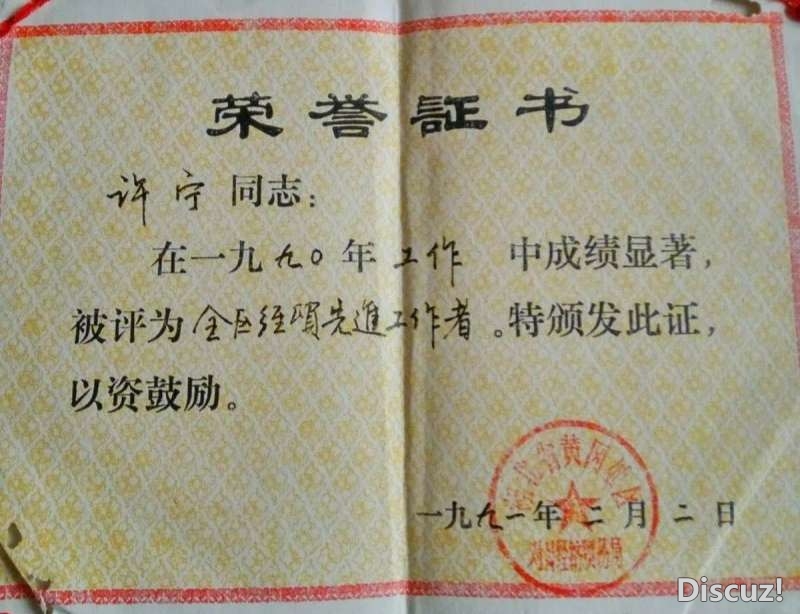 荣誉証书
许宁同志：
在一九九〇年工作中成绩显著，
被评为全区经贸先進工作者。特颁发此证，
以资鼓励。
湖北省黄冈地区
对外经济贸易局
一九九一年二月二日
Discuz!